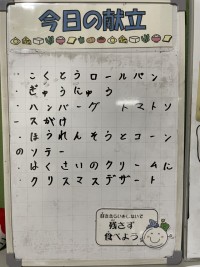 今日の献立
・こくとうロールパン
・ぎゅうにゅう
・ハンバーグ トマトソ
ースがけ
・ほうれんそうとコーン
のソテー
・はくさいのクリームに
・クリスマスデザート
好ききらいをしないで
残さず
食べよう